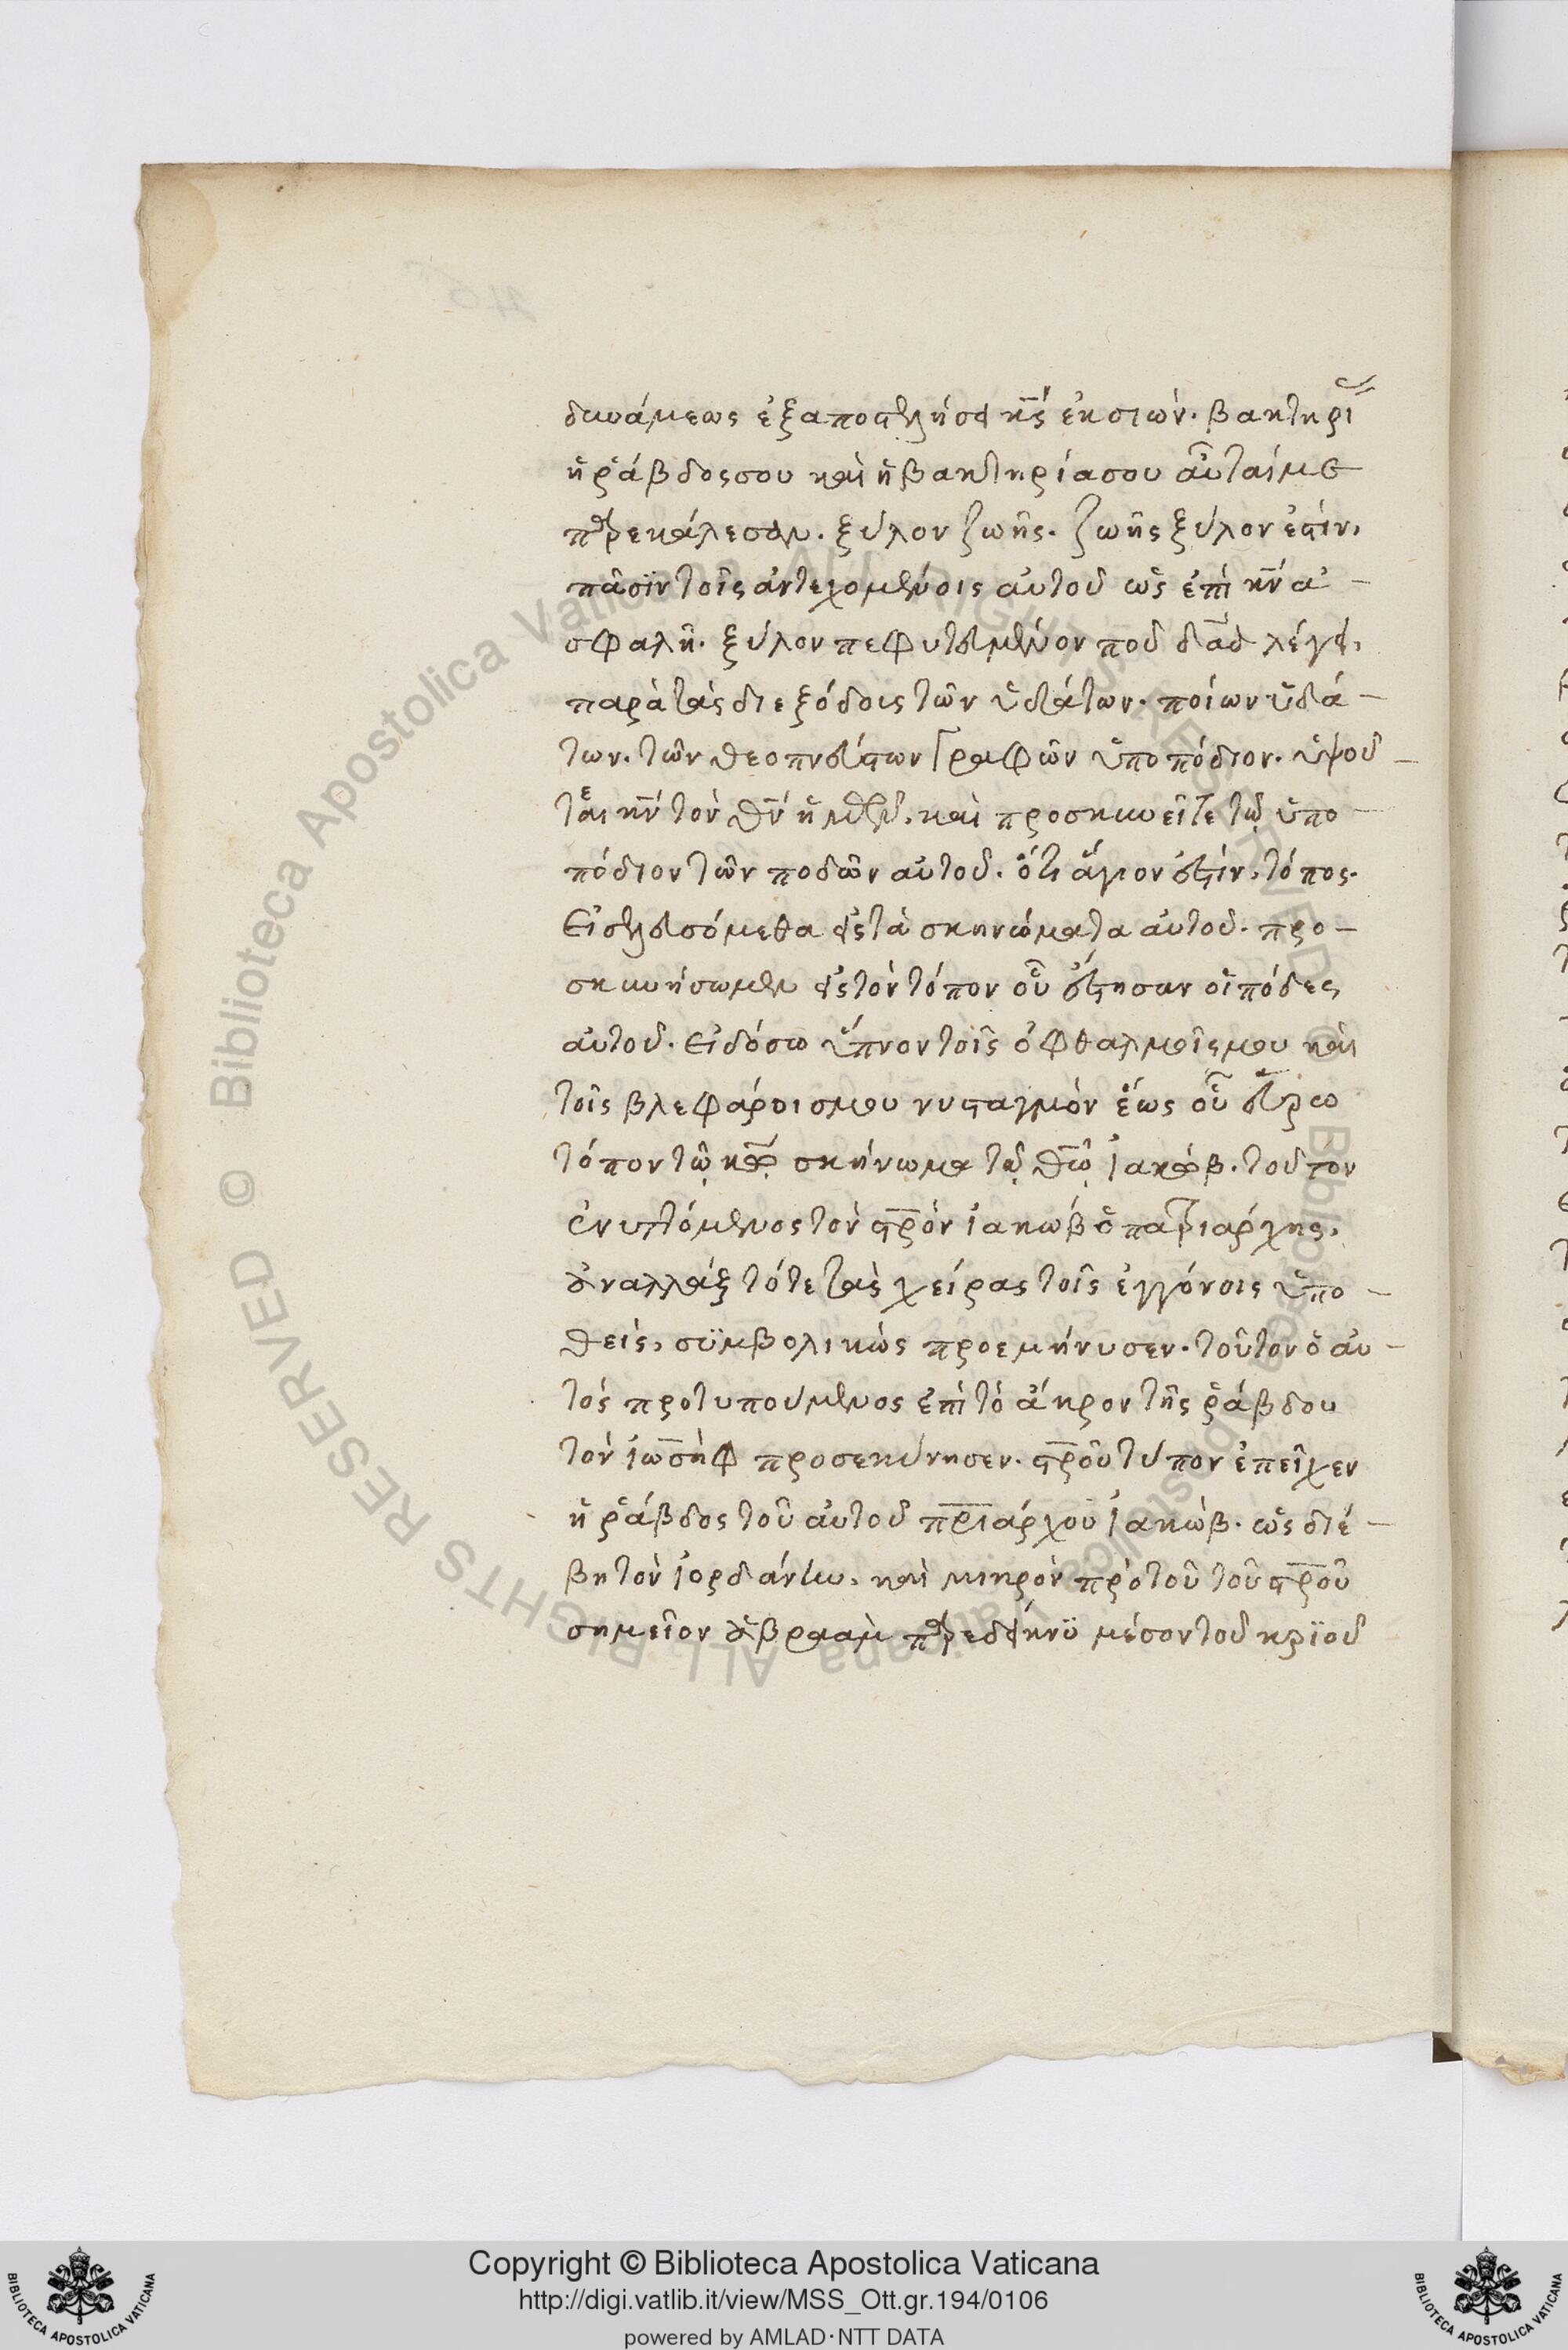 δυνάμεως ἐξαποστελεῖ σοι κς ἐκ σιών. βακτηρί
ἡ ῥάβδος σου καὶ ἡ βακτηρία σου αὗται με
παρεκάλεσαν. ξύλον ζωῆς. ζωῆς ξύλον ἐστίν,
πᾶσϊν τοῖς ἀντεχομένοις αὐτοῦ ὡς ἐπὶ κν ἀ-
σφαλῆ. ξύλον πεφυτευμένον ποῦ δαδ λέγει,
παρὰ τὰς διεξόδοις τῶν ὑδάτων. ποίων ὑδά-
των. τῶν θεοπνεύστων Γραφῶν ὑποπόδιον. ὑψοῦ-
ται κν τὸν θν ἡμῶν, καὶ προσκυνεῖτε τῷ ὑπο-
πόδιον τῶν ποδῶν αὐτοῦ. ὅτι ἅγιον ἐστίν, τόπος.
Εἰσελευσόμεθα εἰς τὰ σκηνώματα αὐτοῦ. προ-
σκυνήσωμεν εἰς τὸν τόπον οὗ ἔστησαν οἱ πόδες
αὐτοῦ. Εἰ δόσω ὕπνον τοῖς ὀφθαλμοῖς μου καὶ
τοῖς βλεφάροισμου νυσταγμόν ἕως οὗ εὕρω
τόπον τῷ κῳ σκήνωμα τῷ θῷ ἰακώβ. τοῦτον
ἐνυπτόμενος τὸν στρόν ἰακώβ ὁ πατριάρχης,
ἐναλλὰξ τότε τὰς χεῖρας τοῖς ἐγγόνοις ὑπο-
θεὶς, σϋμβολικῶς προεμήνυσεν. τοῦτον ὁ αὐ-
τός προτυπούμενος ἐπὶ τὸ ἄκρον τῆς ῥάβδου
τὸν ἰωσὴφ προσεκύνησεν. στροῦ τύπον ἐπεῖχεν
ἡ ῥάβδος τοῦ αὐτοῦ πριάρχου ἰακώβ. ὡς διέ-
βη τὸν ἰορδάνην, καὶ μικρὸν πρὸ τοῦ τοῦ στροῦ
σημεῖον ἀβρααμ παρεδείκνϋ μέσον τοῦ κρϊοῦ
Copyright © Biblioteca Apostolica Vaticana
http://digi.vatlib.it/view/MSS_Ott.gr.194/0106
powered by AMLAD·NTT DATA